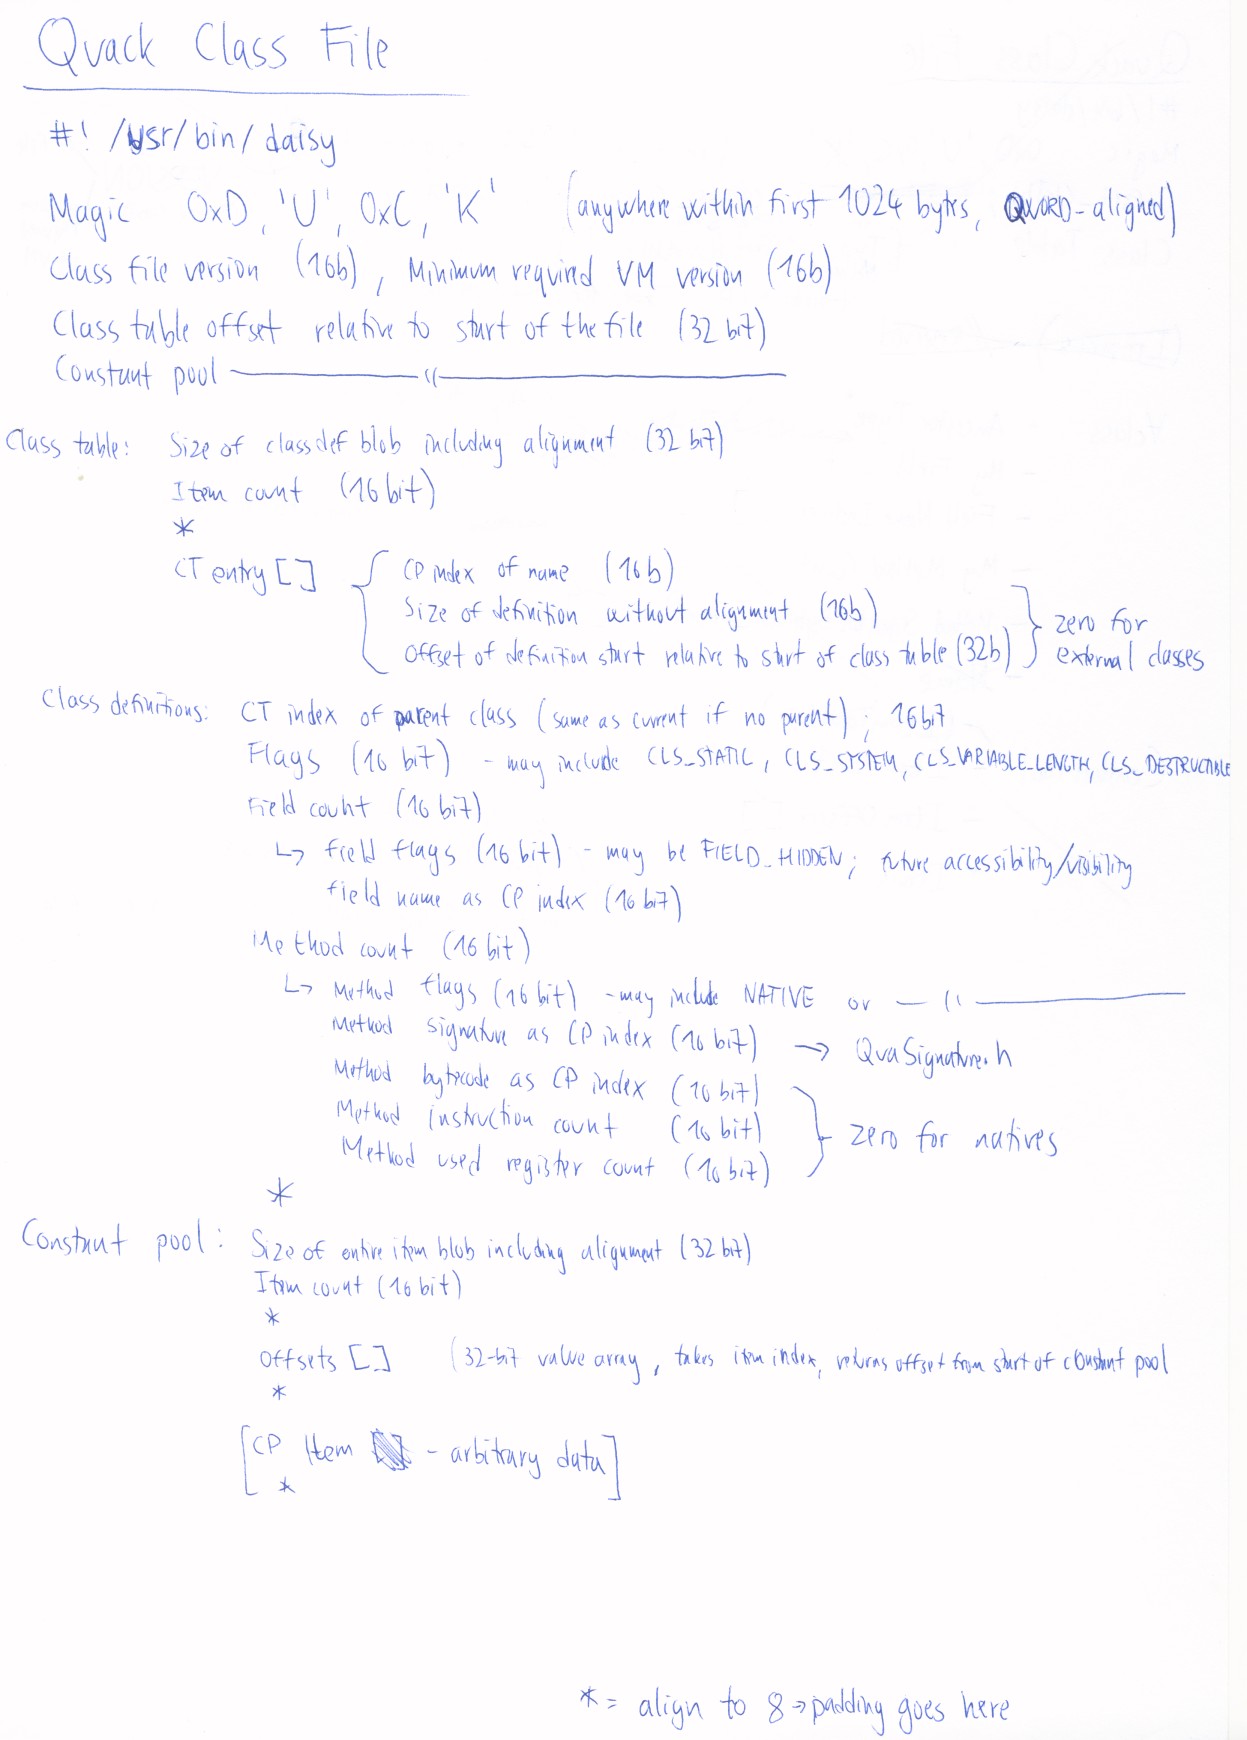 Quack Class File
#! /usr/bin/daisy
Magic 0xD, 'U', 0xC, 'K' (anywhere within first 1024 bytes, QWORD-aligned)
Class file version (16b), Minimum required VM version (16b)
Class table offset relative to start of the file (32 bit)
Constant pool —— 〃 ——
Class table: Size of classdef blob including alignment (32 bit)
Item count (16 bit)
*
CT entry [] { CP index of name (16b)
Size of definition without alignment (16b)
Offset of definition start relative to start of class table (32b) } zero for external classes
Class definitions: CT index of parent class (same as current if no parent); 16 bit
Flags (16 bit) - may include CLS_STATIC, CLS_SYSTEM, CLS_VARIABLE_LENGTH, CLS_DESTRUCTIBLE
Field count (16 bit)
↳ Field flags (16 bit) - may be FIELD_HIDDEN; future accessibility/visibility
Field name as CP index (16 bit)
Method count (16 bit)
↳ Method flags (16 bit) - may include NATIVE or — 〃 ——
Method signature as CP index (16 bit) → QvaSignature.h
Method bytecode as CP index (16 bit)
Method instruction count (16 bit) } zero for natives
Method used register count (16 bit)
*
Constant pool: Size of entire item blob including alignment (32 bit)
Item count (16 bit)
*
Offsets [] (32-bit value array, takes item index, returns offset from start of constant pool
*
[CP Item - arbitrary data]
*
* = align to 8 → padding goes here